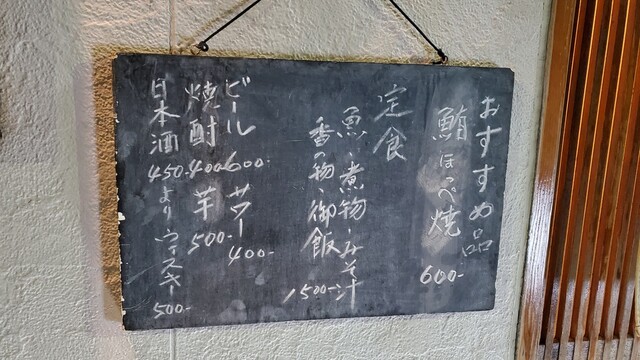 おすすめ品
鮪ほっぺ焼
600-
定食
魚・煮物・みそ汁
香の物・御飯
1500-
ビール 600- サワー 400-
焼酎 400- 芋 500-
日本酒 450-より ウィスキー 500-